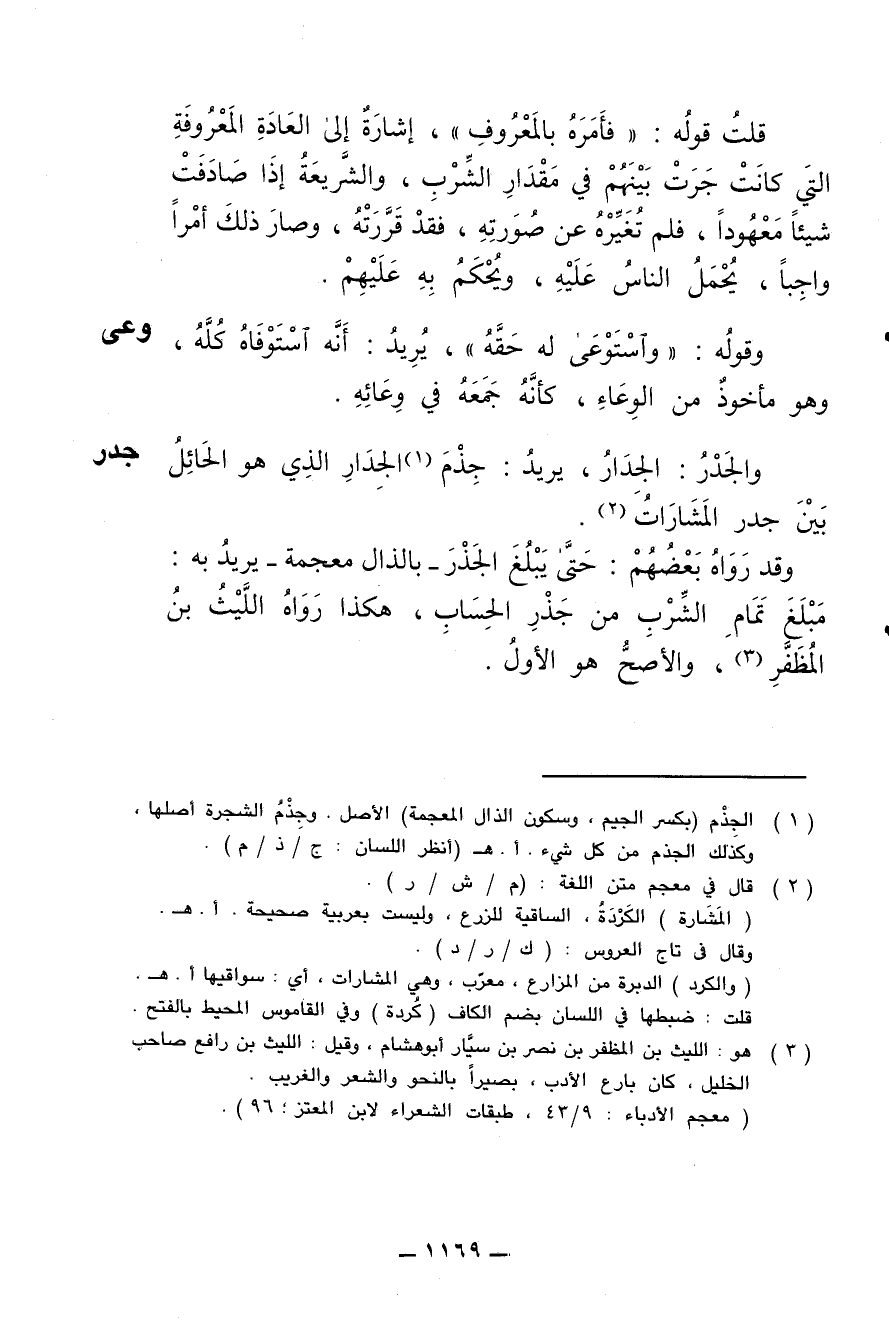 قلتُ قولُه : « فأَمَرَهُ بالمَعْرُوفِ » ، إشارَةٌ إلىٰ العَادَةِ المَعْرُوفَةِ
التيَ كانَتْ جَرَتْ بَيْنَهُمْ في مَقْدَارِ الشِّرْبِ ، والشَّريعَةُ إذَا صَادَفَتْ
شيئاً مَعْهُوداً ، فلم تُغَيِّرْهُ عن صُورَتِهِ ، فقدْ قَرَّرَتْهُ ، وصارَ ذلكَ أمْراً
واجِباً ، يُحْمَلُ الناسُ عَلَيْهِ ، ويُحْكَمُ بِهِ عَلَيْهِمْ .
وقولُه : « وٱسْتَوْعَىٰ له حَقَّهُ » ، يُرِيدُ : أَنَّه ٱسْتَوْفَاهُ كُلَّهُ ، وعى
وهو مأخوذٌ من الوِعَاءِ ، كأنَّهُ جَمَعَهُ في وِعَائِهِ .
والجَدْرُ : الجدَارُ ، يريدُ : جِذْمَ (١) الجِدَارِ الذِي هو الحَائِلُ جدر
بَيْنَ جدر المَشَارَاتُ (٢) .
وقد رَوَاهُ بَعْضُهُمْ : حَتَّىٰ يَبْلُغَ الجَذْرَ ـ بالذال معجمة ـ يريدُ به :
مَبْلَغَ تَمَامِ الشِّرْبِ من جَذْرِ الحِسَابِ ، هكذا رَوَاهُ اللَّيْثُ بنُ
المُظَفَّرِ (٣) ، والأصحُّ هو الأولُ .
( ١ ) الجِذْم (بكسر الجيم ، وسكون الذال المعجمة) الأصل . وجِذْمُ الشجرة أصلها ،
وكذلك الجذم من كل شيء . أ . هـ (أنظر اللسان : ج / ذ / م ) .
( ٢ ) قال في معجم متن اللغة : (م / ش / ر ) .
( المَشَارة ) الكَرْدَةُ ، الساقية للزرع ، وليست بعربية صحيحة . أ . هـ .
وقال فى تاج العروس : ( ك / ر / د ) .
( والكرد ) الدبرة من المزارع ، معرّب ، وهي المشارات ، أي : سواقيها أ . هـ .
قلت : ضبطها في اللسان بضم الكاف ( كُردة ) وفي القاموس المحيط بالفتح .
( ٣ ) هو : الليث بن المظفر بن نصر بن سيَّار أبوهشام ، وقيل : الليث بن رافع صاحب
الخليل ، كان بارع الأدب ، بصيراً بالنحو والشعر والغريب .
( معجم الأدباء : ٤٣/٩ ، طبقات الشعراء لابن المعتز ؛ ٩٦ ) .
ـ ١١٦٩ ـ